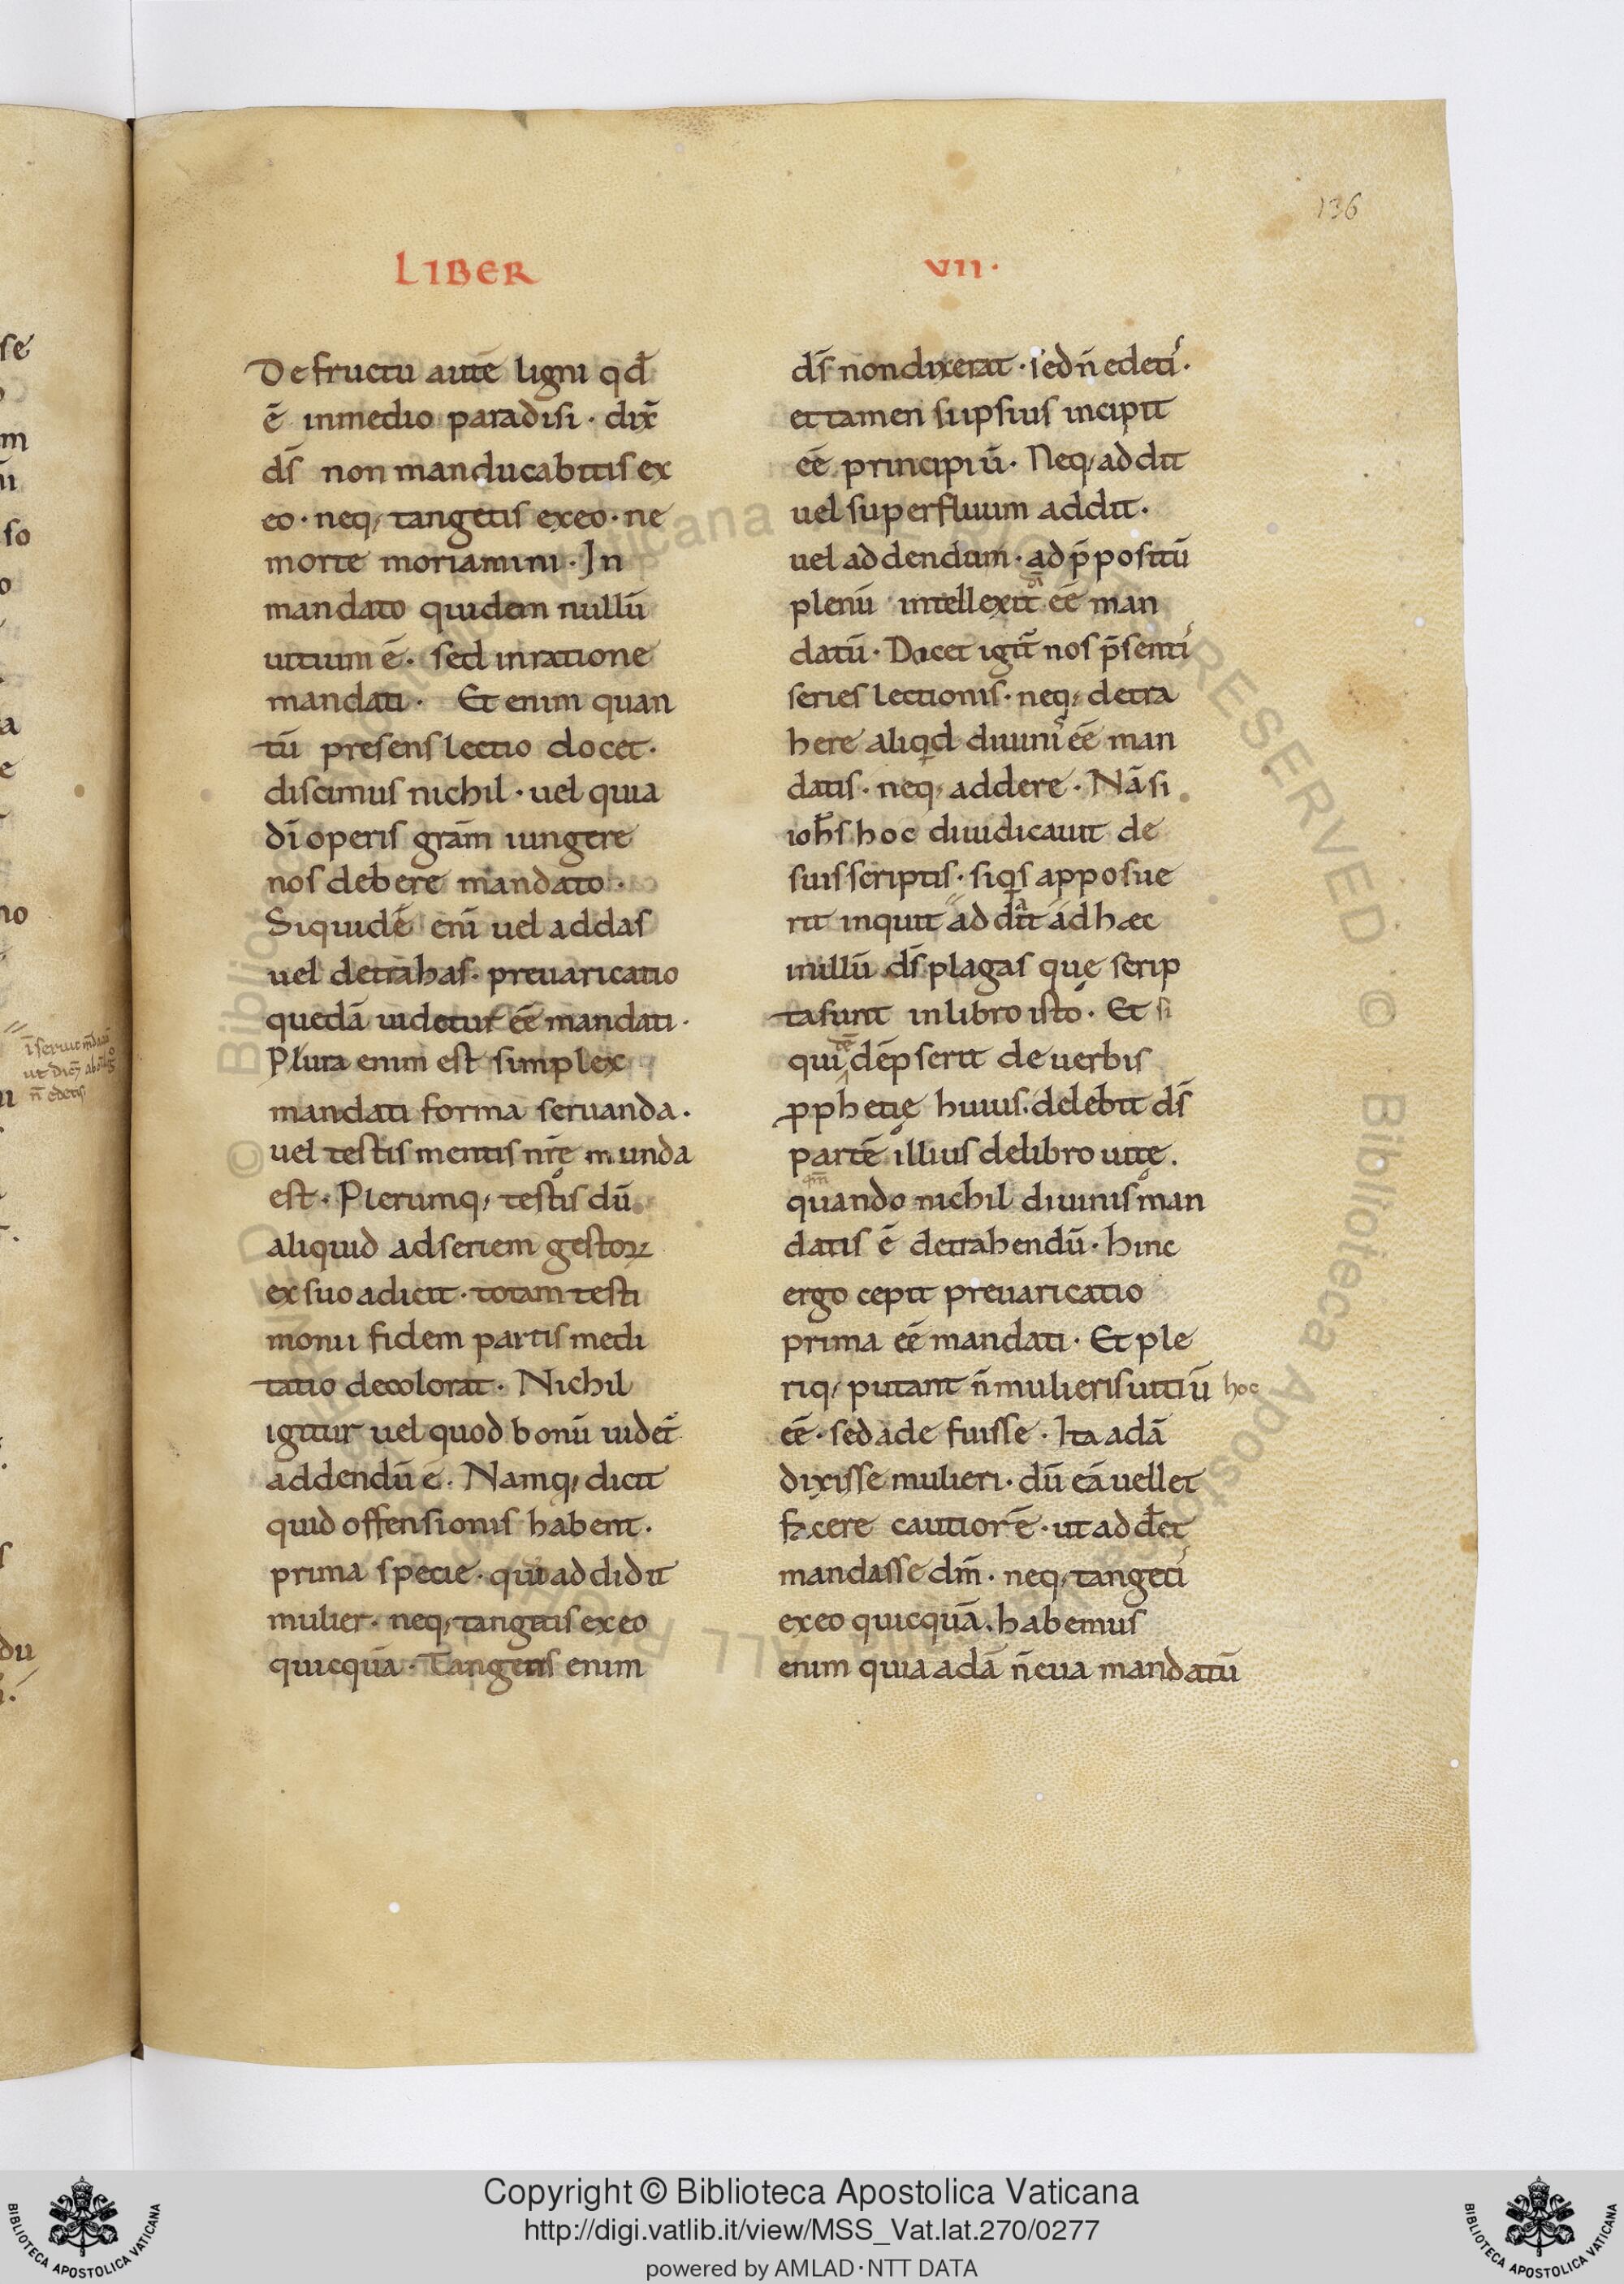 136
LIBER
VII·
De fructu autē ligni qđ
ē inmedio paradisi · dix̄
dr̄ non manducabitis ex
eo · neq; tangetis exeo · ne
morte moriamini · In
mandato quidem nullū
uitium ē · sed inratione
mandati · Et enim quan
tū presens lectio docet ·
discimus nichil · uel quia
dī operis grām iungere
nos debere mandato ·
Siquidē enī uel addas
uel detrahas · preuaricatio
quedā uidetur eē mandati ·
Plura enim est simplex
mandati forma seruanda ·
uel testis mentis nr̄ę munda
est · Plerumq; testis dū
aliquid adseriem gestoꝝ
ex suo adicit · totam testi
monii fidem partis medi
tatio decolorat · Nichil
igitur uel quod bonū uidet̄
addendū ē · Namq; dicit
quid offensionis habent ·
prima specie · quod addidit
mulier · neq; tangitis exeo
quicquā · Tangens enim
ds̄ non dixerat · sed n̄ edeti͛ ·
et tamen supsius incipit
eē principiū · Neq; addit
uel superfluum addit ·
uel addendum · ad p̄positū
plenū intellexit eē man
datū · Docet igit̄ nos p̄senti͛
series lectionis · neq; detra
here aliqd diuini͛ eē man
datis · neq; addere · Nā si
ioh̄s hoc diiudicauit de
suis scriptis · siqs apposue
rit inquit ad dīt adhæc
inillū ds̄ plagas quę scrip
ta sunt inlibro isto · Et si
qui dēpserit de uerbis
ꝓphetię huius · delebit ds̄
partē illius delibro uitę ·
qm̄
quando nichil diuinis man
datis ē detrahendū · hinc
ergo cepit preuaricatio
prima eē mandati · Et ple
riq; putant n̄ mulieris uitiū hoc
eē · sed ade fuisse · Ita adā
dixisse mulieri · dū eā uellet
facere cautiorē · ut adđet
mandasse dm̄ · neq; tangeti͛
exeo quicquā · habemus
enim quia adā n̄ eua mandatū
Copyright © Biblioteca Apostolica Vaticana
http://digi.vatlib.it/view/MSS_Vat.lat.270/0277
powered by AMLAD·NTT DATA
BIBLIOTECA APOSTOLICA VATICANA
BIBLIOTECA APOSTOLICA VATICANA